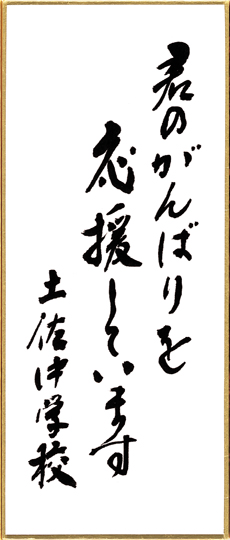 君のがんばりを
応援しています
土佐中学校